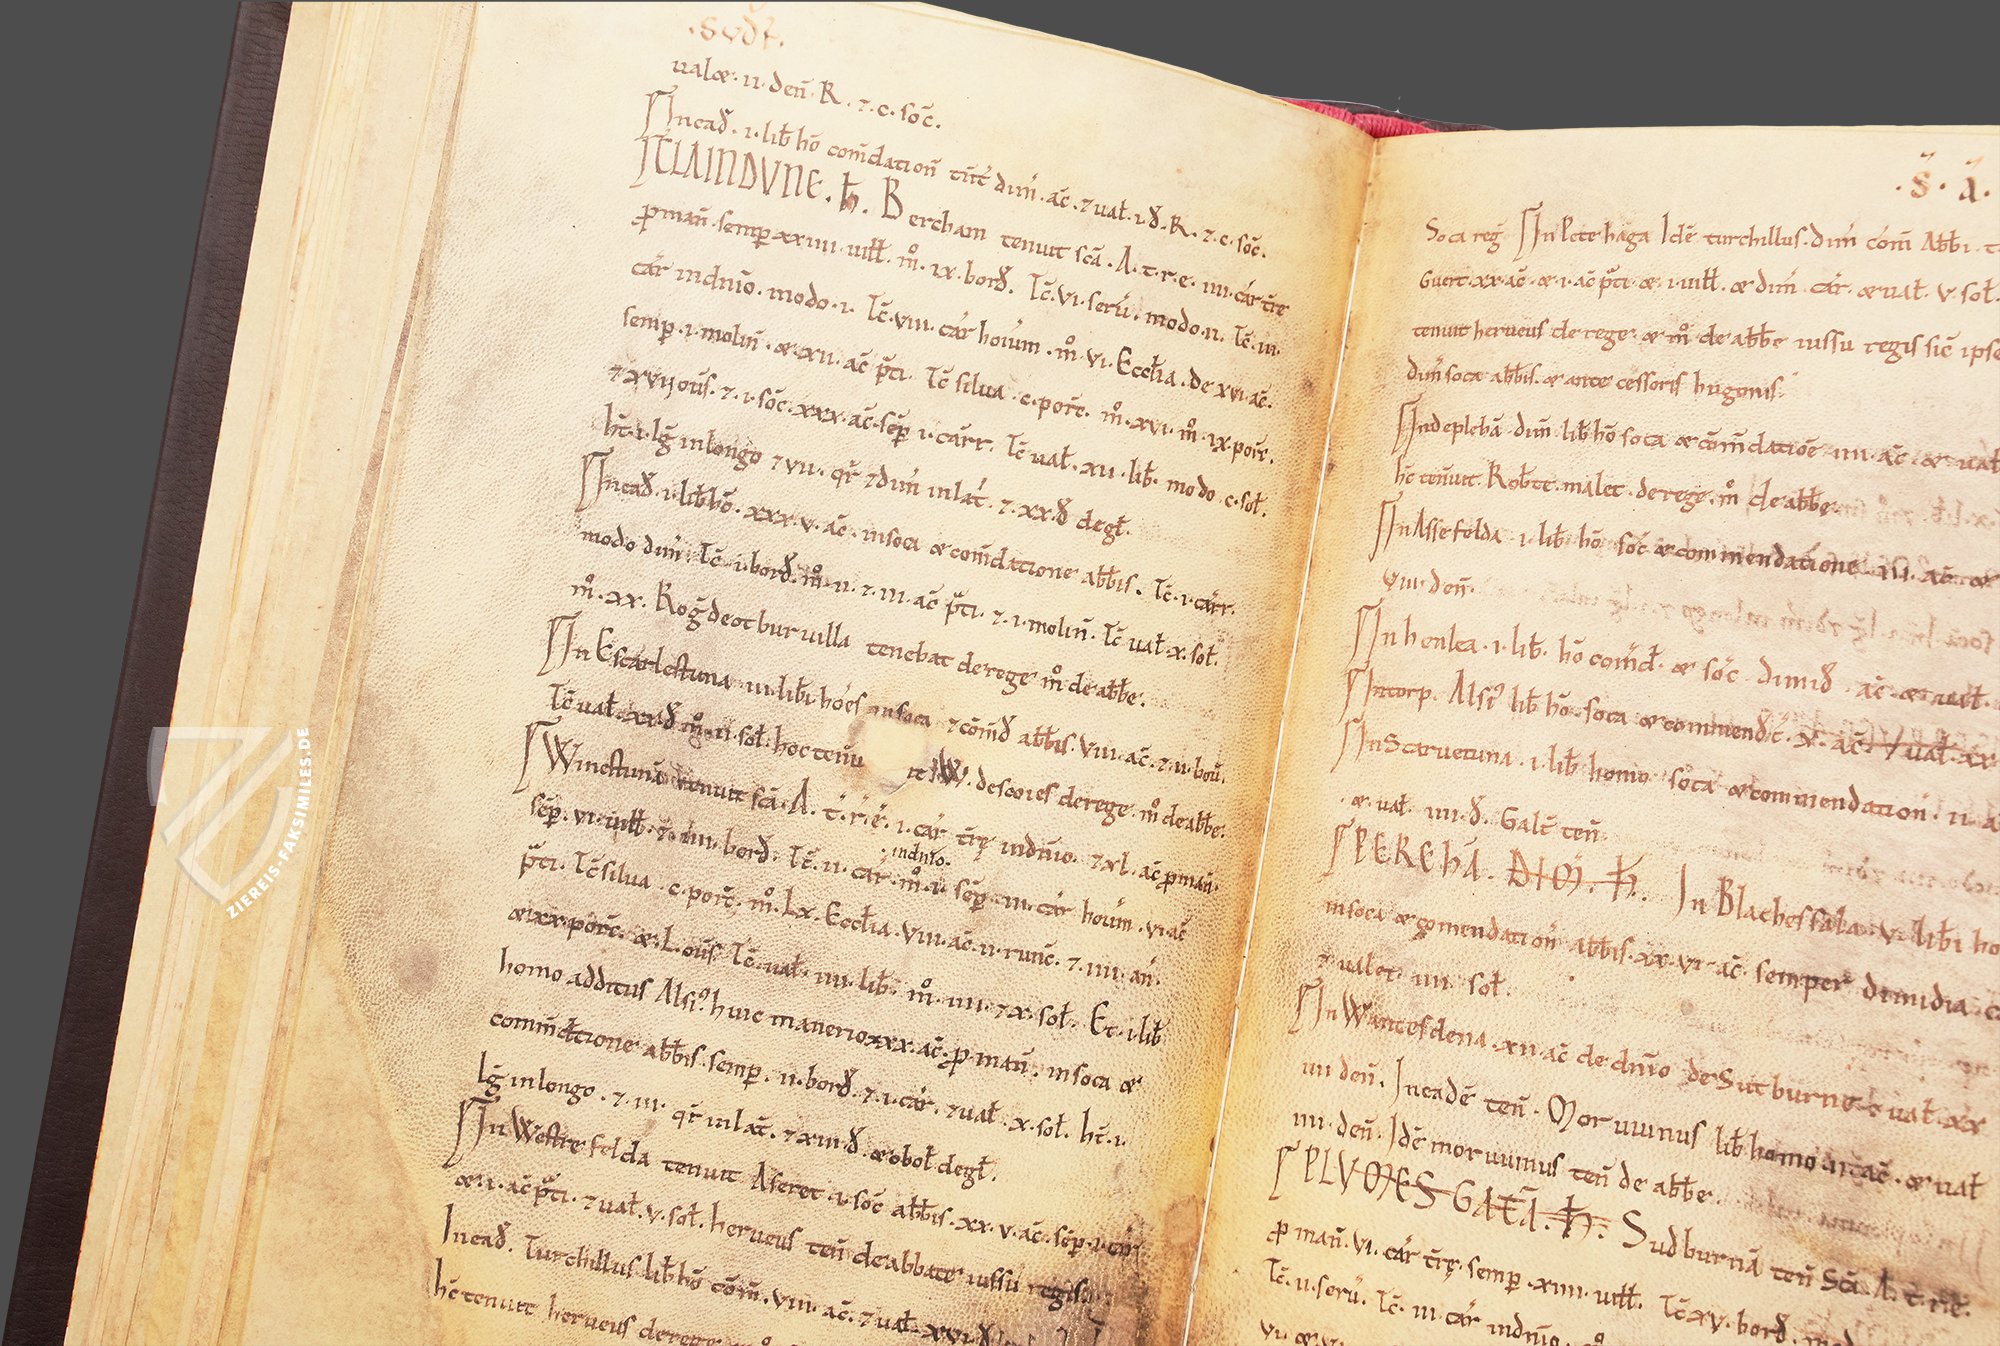 .SVDF.
ualæ · ii · den̄ R . ⁊ . c . soc̄ .
In ead̄ · i · lib̄ hō com̄dation̄ tn̄t dim̄ · ac̄ . ⁊ ual̄ · i · đ . R . ⁊ . c . soc̄ .
CLAINDVNE . h̄ . Bercham tenuit sc̄a . A . t . r . e . iiii · car̄ tr̄e
ꝓ man̄ · semꝑ · xxiiii · uill̄ . m̊ . ix . bord̄ . Tc̄ . vi · seru̅ . modo · ii . Tc̄ . iii ·
car̄ in dn̄io . modo · i . Tc̄ . viii · car̄ houm̄ . m̊ · vi · Eccl̄ia . de xvi · ac̄ .
semꝑ . i · molin̄ . æ · xii · ac̄ p̄ti · Tc̄ silua · c · porc̄ . m̊ . xvi . m̊ · ix · porc̄ .
⁊ xvii ous̄ . ⁊ . i · soc̄ . xxx · ac̄ · sēꝑ · i · carr . Tc̄ ual̄ . xii · lib̄ . modo · c · sol̄ .
ht̄ · i · lḡ in longo ⁊ vii . qr̄ ⁊ dim̄ in lat̄ . ⁊ . xx · đ de gl̄t .
In ead̄ · i · lib̄ hō . xxx · v · ac̄ . in soca æ com̄datione abb̄is . Tc̄ · i · carr .
modo dim̄ . Tc̄ · i · bord̄ . m̊ · ii · ⁊ · iii · ac̄ p̄ti . ⁊ . i · molin̄ . Tc̄ ual̄ · x · sol̄ .
m̊ . xx . Roḡ de ot bur uilla tenebat de rege m̊ de abb̄e .
In Escarlestuna · iii · lib̄i hōes in soca ⁊ com̄đ abb̄is . viii · ac̄ . ⁊ · ii · bou̅ .
Tc̄ ual̄ . xx · đ m̊ · ii · sol̄ . hoc tenu it W . de scoies de rege m̊ de abb̄e .
Winestunā tenuit sc̄a . A . t . r . e . i · car̄ tr̄e in dn̄io ⁊ xl . ac̄ ꝓ man̄ .
sēꝑ . vi · uill̄ . ⁊ . iiii · bord̄ . Tc̄ . ii · car̄ · in dn̄io . m̊ . i · sēꝑ · iii · car̄ houm̄ . vi · ac̄
p̄ti . Tc̄ silua · c · porc̄ . m̊ . Lx . Eccl̄ia . viii · ac̄ · ii · runc̄ . ⁊ . iiii · an̄ .
æ xx · porc̄ . æ . L . ous̄ Tc̄ · ual̄ · iiii · lib̄ · m̊ · iiii · ⁊ · x · sol̄ . Et · i · lib̄
homo additus Alsi⁹ huic manerio xxx · ac̄ · ꝓ man̄ . in soca æ
com̄d̄tione abb̄is · semꝑ . ii · bord̄ . ⁊ · i · car̄ . ⁊ ual̄ . x · sol̄ . ht̄ · i ·
lḡ in longo . ⁊ . iii · qr̄ in lat̄ . ⁊ xiii · đ · æ obol̄ de gl̄t .
In Westrefelda tenuit Aseret · i · soc̄ abb̄is . xx · v · ac̄ · sēꝑ · i · car̄
æ · i · ac̄ p̄ti . ⁊ ual̄ . v · sol̄ . herueus ten̄ de abbate iussu regis .
In ead̄ . Turchillus lib̄ hō com̄ . viii · ac̄ . ⁊ ual̄ · xvi · đ
hc̄ tenuit herueus de rege
. S̄ . A .
Soca reḡ In Petehaga Idē turchillus dim̄ com̄ Abb̄i .
Guert · xx · ac̄ · æ · i · ac̄ p̄ti · æ · i · uill̄ · æ dim̄ car̄ · æ ual̄ · v · sol̄ .
tenuit herueus de rege æ m̊ de abb̄e iussu regis sic̄ ipse
dim̄ soca abb̄is . æ ante cessoris hugonis .
In depleba̅ dim̄ lib̄ hō soca æ com̄datioē iiii · ac̄ · æ ual̄
hc̄ tenuit . Rob̄t malet . de rege . m̊ de abb̄e .
In Assefelda · i · lib̄ hō soc̄ æ commendatione · iii · ac̄ æ
viii · den̄ .
In henlea · i · lib̄ . hō com̄d̄ · æ soc̄ · dimiđ · ac̄ · æ ual̄ ·
In torp . Alsi⁹ lib̄ hō · soca æ commend̄c̄ . x . ac̄ . ⁊ ual̄ · xx
In Scaruetuna · i · lib̄ homo soca æ commendation̄ · ii · a
· æ · ual̄ · iiii · đ . Galt̄ ten̄ .
PEREHA̅ . DIM̄ . H̄ . In Blachessala · v · lib̄i ho
in soca æ comendation̄ abb̄is · xx · vi · ac̄ · semper dimidia c
⁊ ualet · iiii · sol̄ .
In Wantesdena · xii · ac̄ de dn̄io de Sutburne ⁊ ual̄ · xx
iiii · den̄ . In eadē ten̄ . Moruuinus lib̄ homo · ii · ac̄ · æ ual̄
iiii · den̄ . Idē moruuinus ten̄ de abb̄e .
PLVMESGATA̅ . H̄ . Sudburnā ten̄ Sc̄a . A . t . r . e .
ꝓ man̄ . vi · car̄ tr̄e · semꝑ · xiiii · uill̄ . Tc̄ xv · bord̄ .
Tc̄ · ii · seru̅ . Tc̄ · iii · car̄ in dn̄io